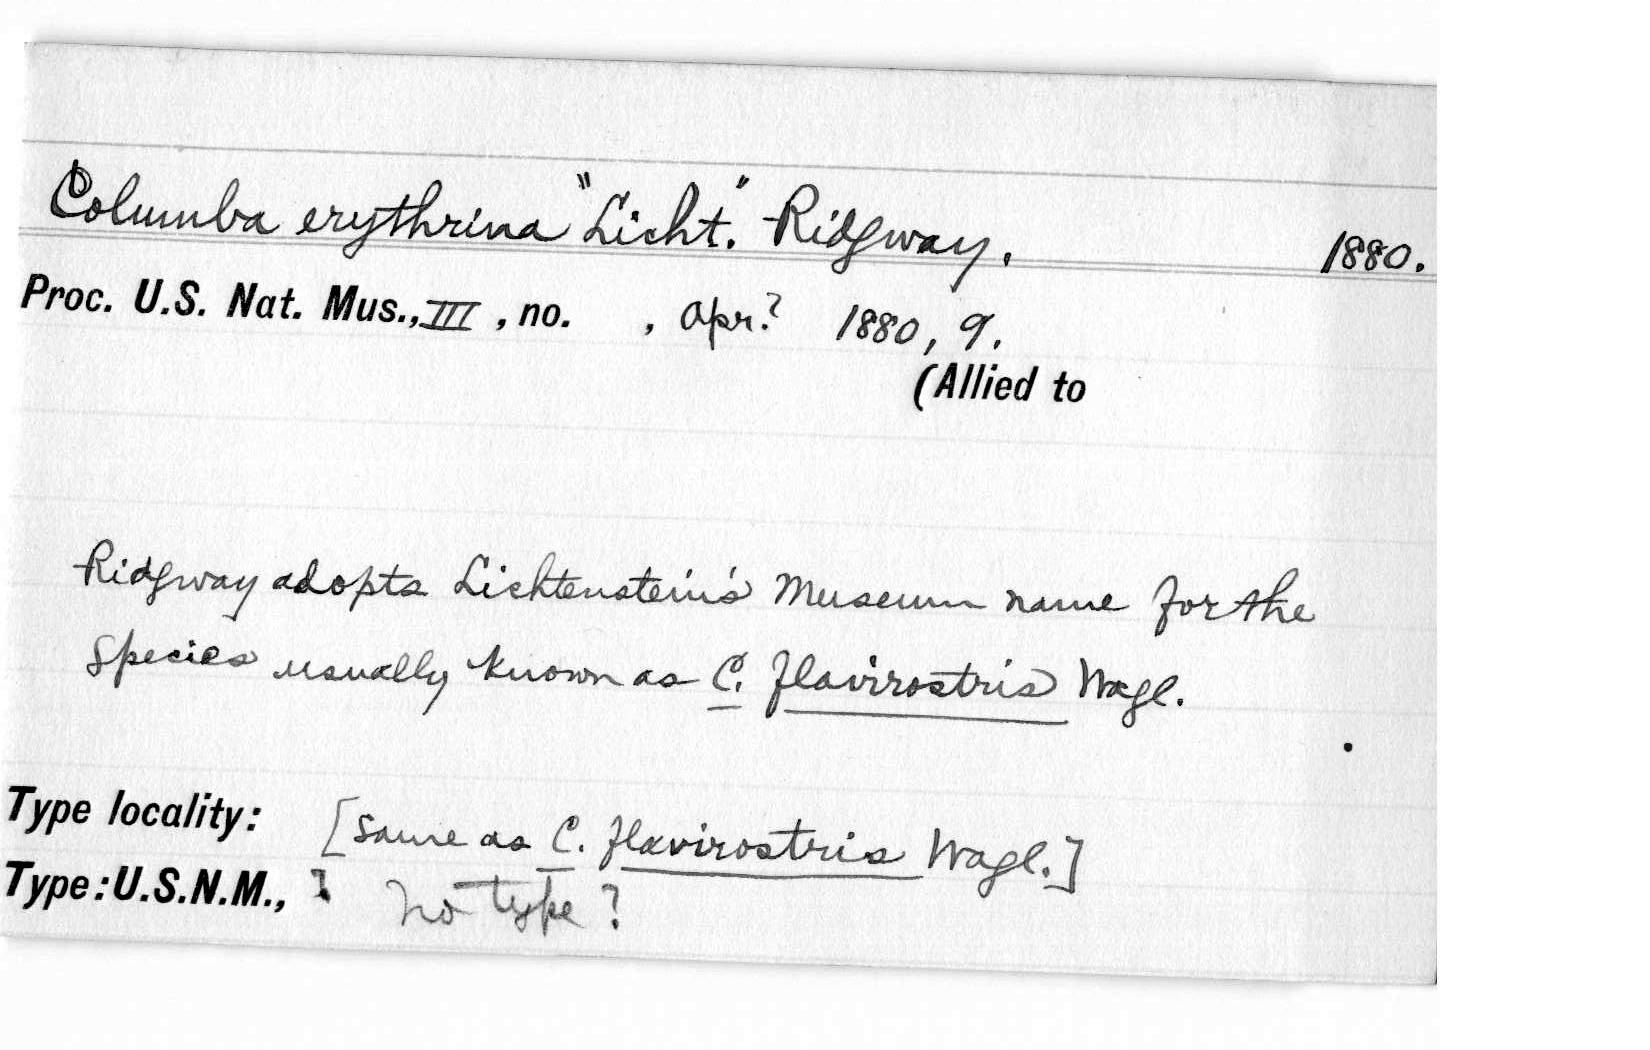 Columba erythrina "Licht." Ridgway. 1880.
Proc. U.S. Nat. Mus., III, no. , Apr.? 1880, 9.
(Allied to
Ridgway adopts Lichtenstein's Museum name for the
species usually known as C. flavirostris Wagl.
Type locality: [Same as C. flavirostris Wagl.]
Type: U.S.N.M., ? No type?